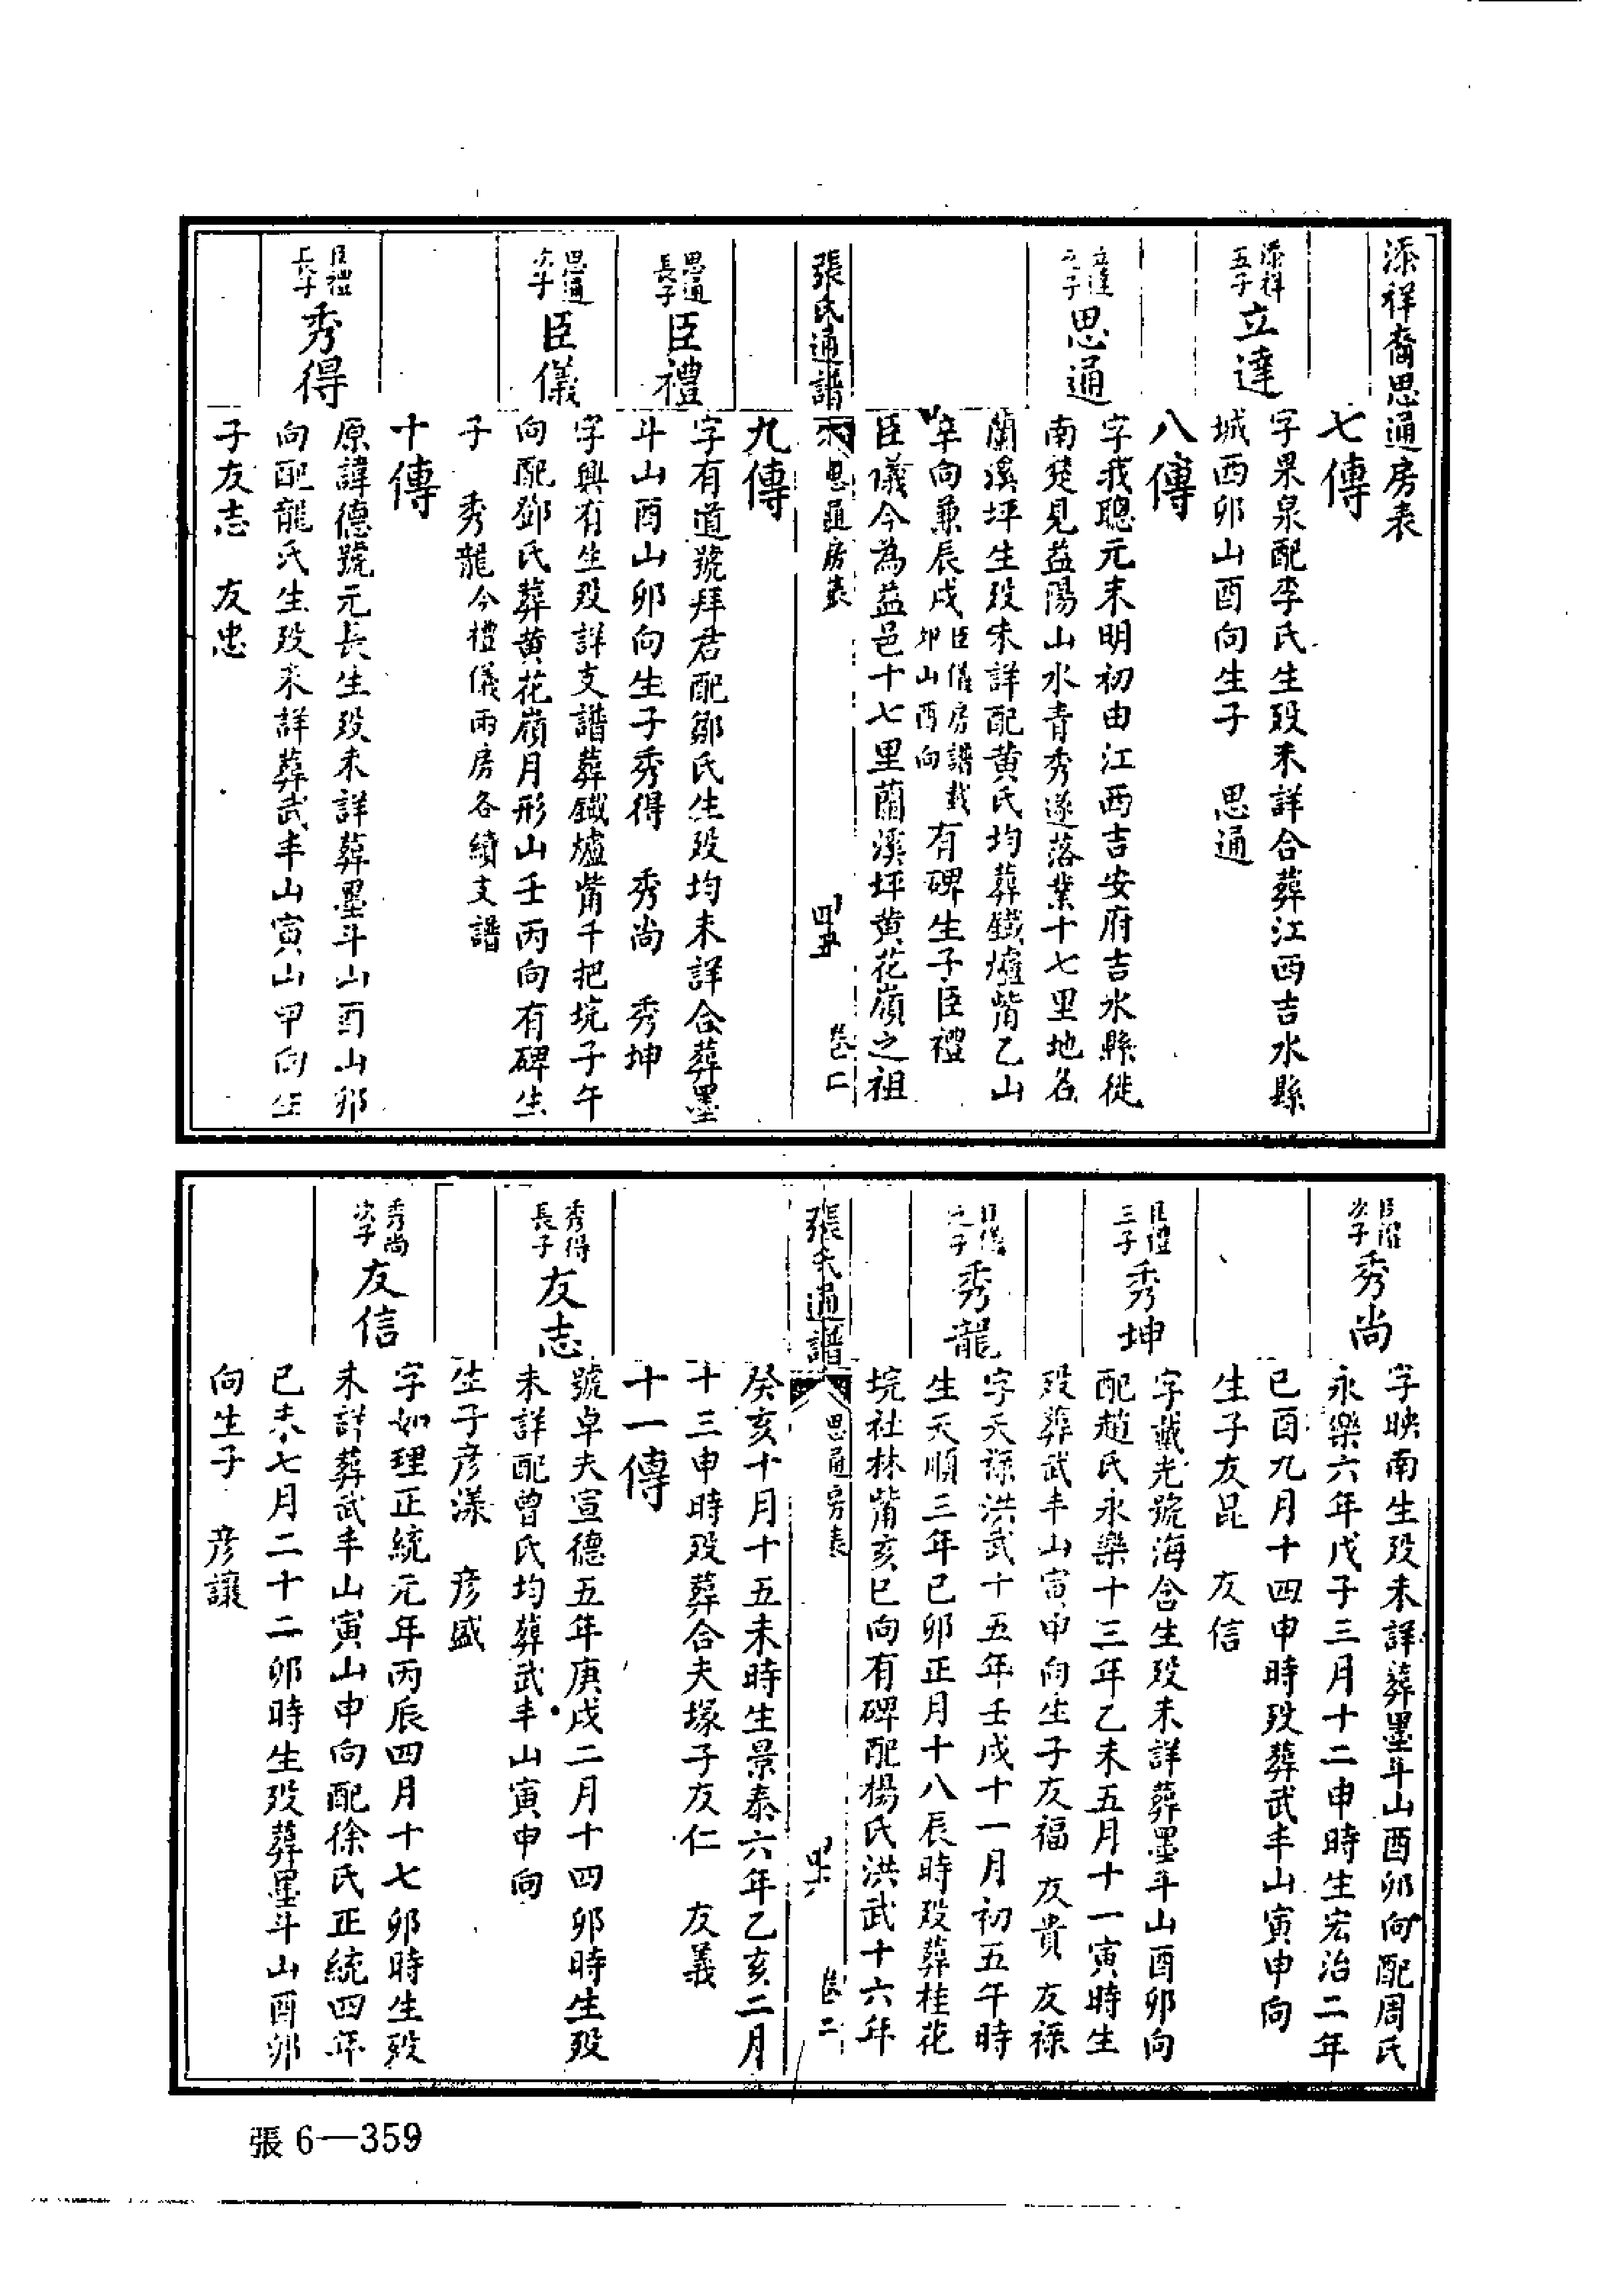 添祥裔思通房表
七傳
添祥五子 立達
字果泉配李氏生歿未詳合葬江西吉水縣
城西卯山酉向生子 思通
八傳
立達之子 思通
字我聰元末明初由江西吉安府吉水縣徙
南楚見益陽山水青秀遂落業十七里地名
蘭溪坪生歿未詳配黄氏均葬鐵爐觜乙山
辛向兼辰戌臣儀房譜載卯山酉向有碑生子臣禮
臣儀今為益邑十七里蘭溪坪黄花嶺之祖
張氏通譜
思通房表
四五
卷二
九傳
思通長子 臣禮
字有道號拜君配鄒氏生歿均未詳合葬墨
斗山酉山卯向生子秀得 秀尚 秀坤
思通次子 臣儀
字興有生歿詳支譜葬鐵爐觜千把垸子午
向配鄧氏葬黄花嶺月形山壬丙向有碑生
子 秀龍今禮儀兩房各續支譜
十傳
臣禮長子 秀得
原諱德號元長生歿未詳葬墨斗山酉山卯
向配龍氏生歿未詳葬武丰山寅山甲向生
子友志 友忠
臣禮次子 秀尚
字映南生歿未詳葬墨斗山酉卯向配周氏
永樂六年戊子三月十二申時生宏治二年
已酉九月十四申時歿葬武丰山寅申向
生子友昆 友信
臣禮三子 秀坤
字藏光號海含生歿未詳葬墨斗山酉卯向
配趙氏永樂十三年乙未五月十一寅時生
歿葬武丰山寅申向生子友福 友貴 友祿
臣儀之子 秀龍
字天祿洪武十五年壬戌十一月初五午時
生天順三年已卯正月十八辰時歿葬桂花
垸社林觜亥巳向有碑配楊氏洪武十六年
張氏通譜
思通房表
四六
卷二
癸亥十月十五未時生景泰六年乙亥二月
十三申時歿葬合夫塚子友仁 友義
十一傳
秀得長子 友志
號卓夫宣德五年庚戌二月十四卯時生歿
未詳配曾氏均葬武丰山寅申向
生子彦漾 彦盛
秀尚次子 友信
字如理正統元年丙辰四月十七卯時生歿
未詳葬武丰山寅山申向配徐氏正統四年
已未七月二十二卯時生歿葬墨斗山酉卯
向生子 彦讓
張6—359